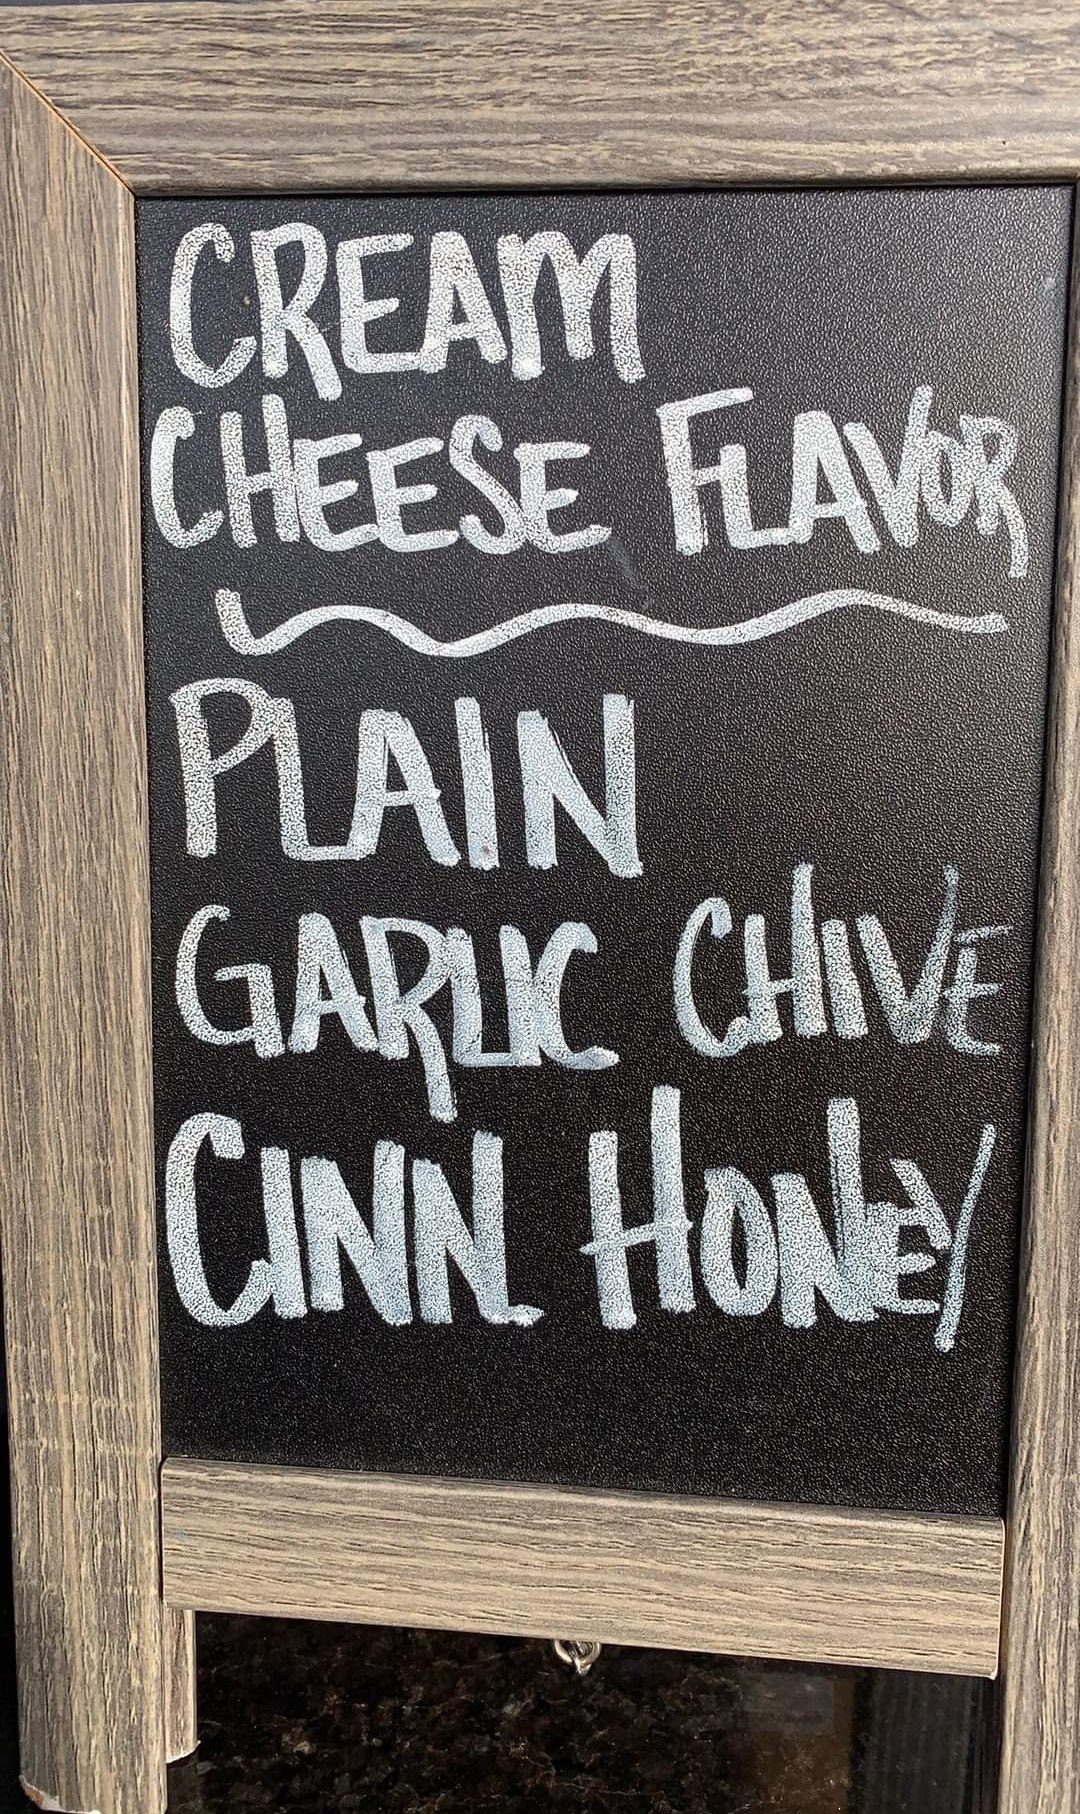 CREAM
CHEESE FLAVOR
PLAIN
GARLIC CHIVE
CINN HONEY